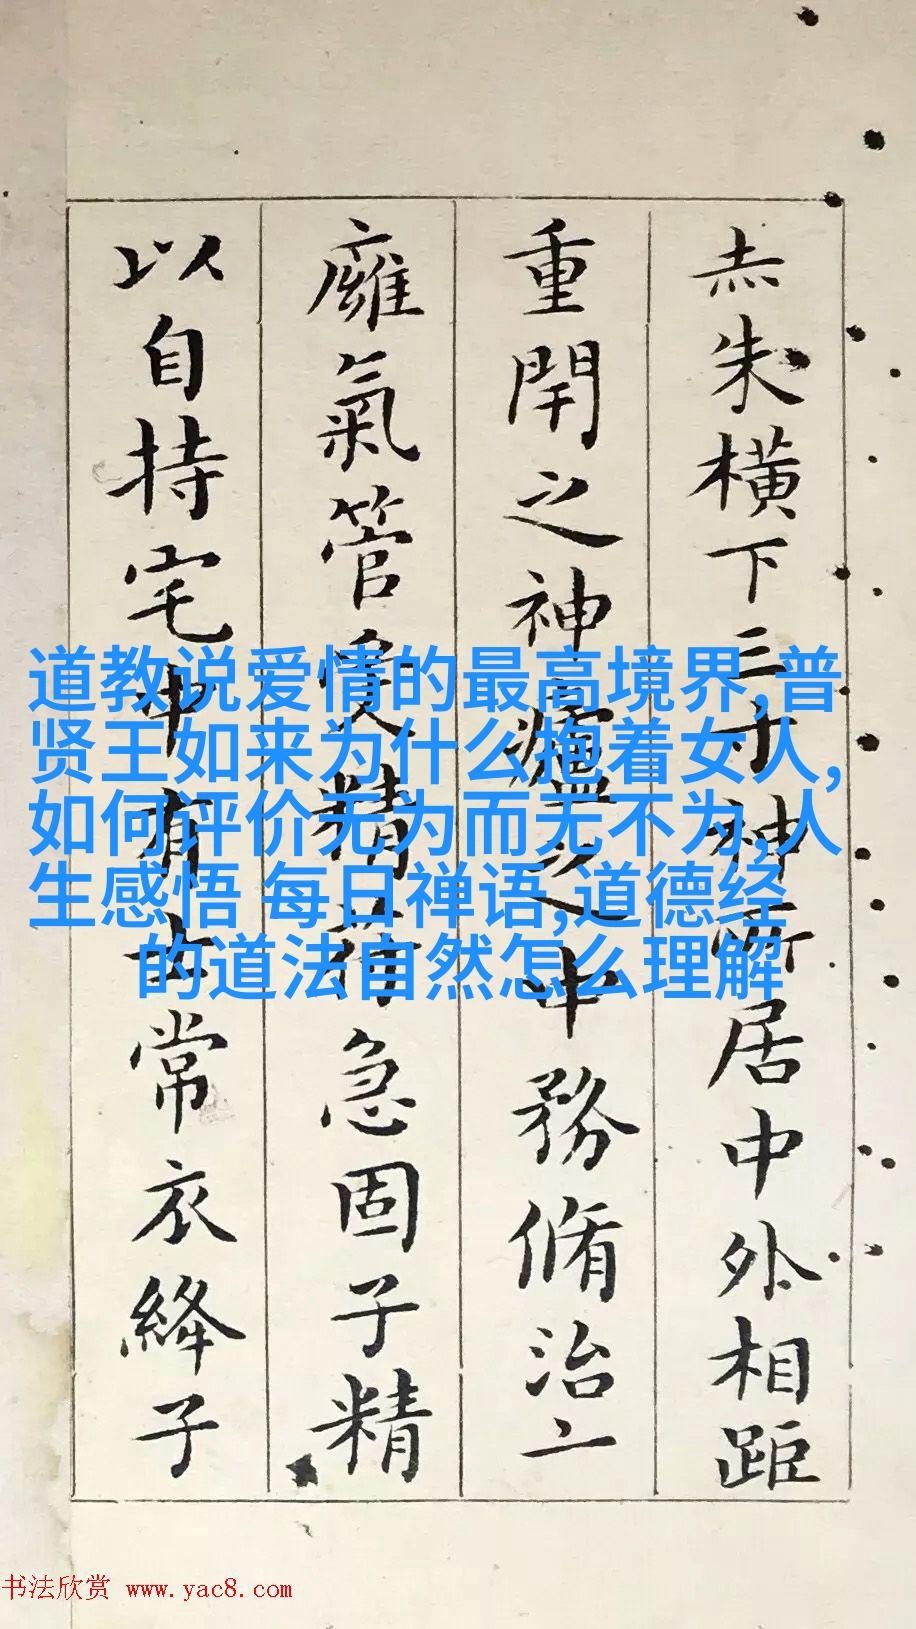 赤朱橫下三寸神所居中外相距
重閇之神廬之中務脩治
癰氣管受精符急固子精
以自持宅中有士常衣絳子
道教说爱情的最高境界,普
贤王如来为什么抱着女人,
如何评价无为而无不为,人
生感悟 每日禅语,道德经
的道法自然怎么理解
书法欣赏 www.yac8.com